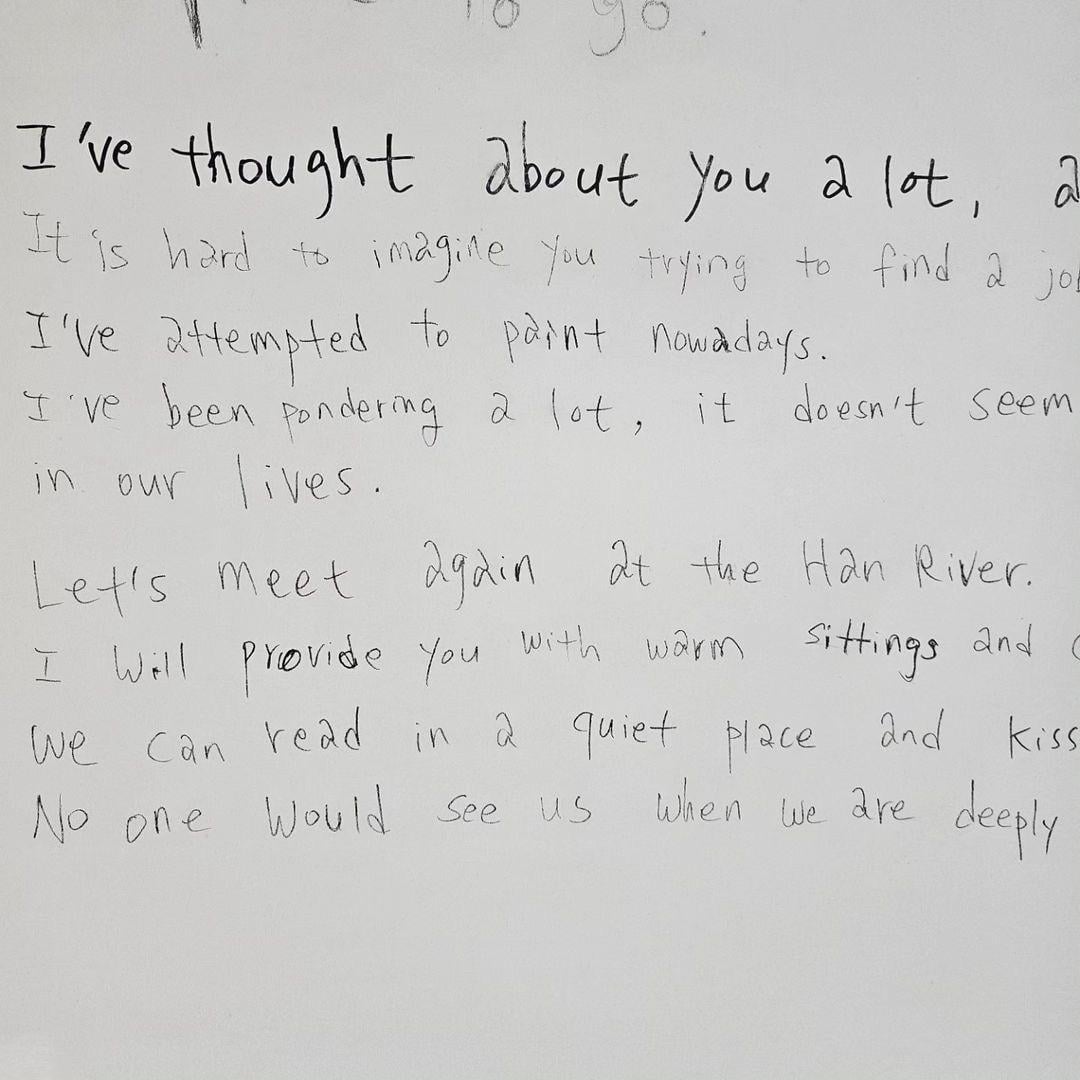 to go.
I've thought about you a lot, a
It is hard to imagine you trying to find a jo
I've attempted to paint nowadays.
I've been pondering a lot, it doesn't seem
in our lives.
Let's meet again at the Han River.
I will provide you with warm sittings and
We can read in a quiet place and kiss
No one would see us when we are deeply